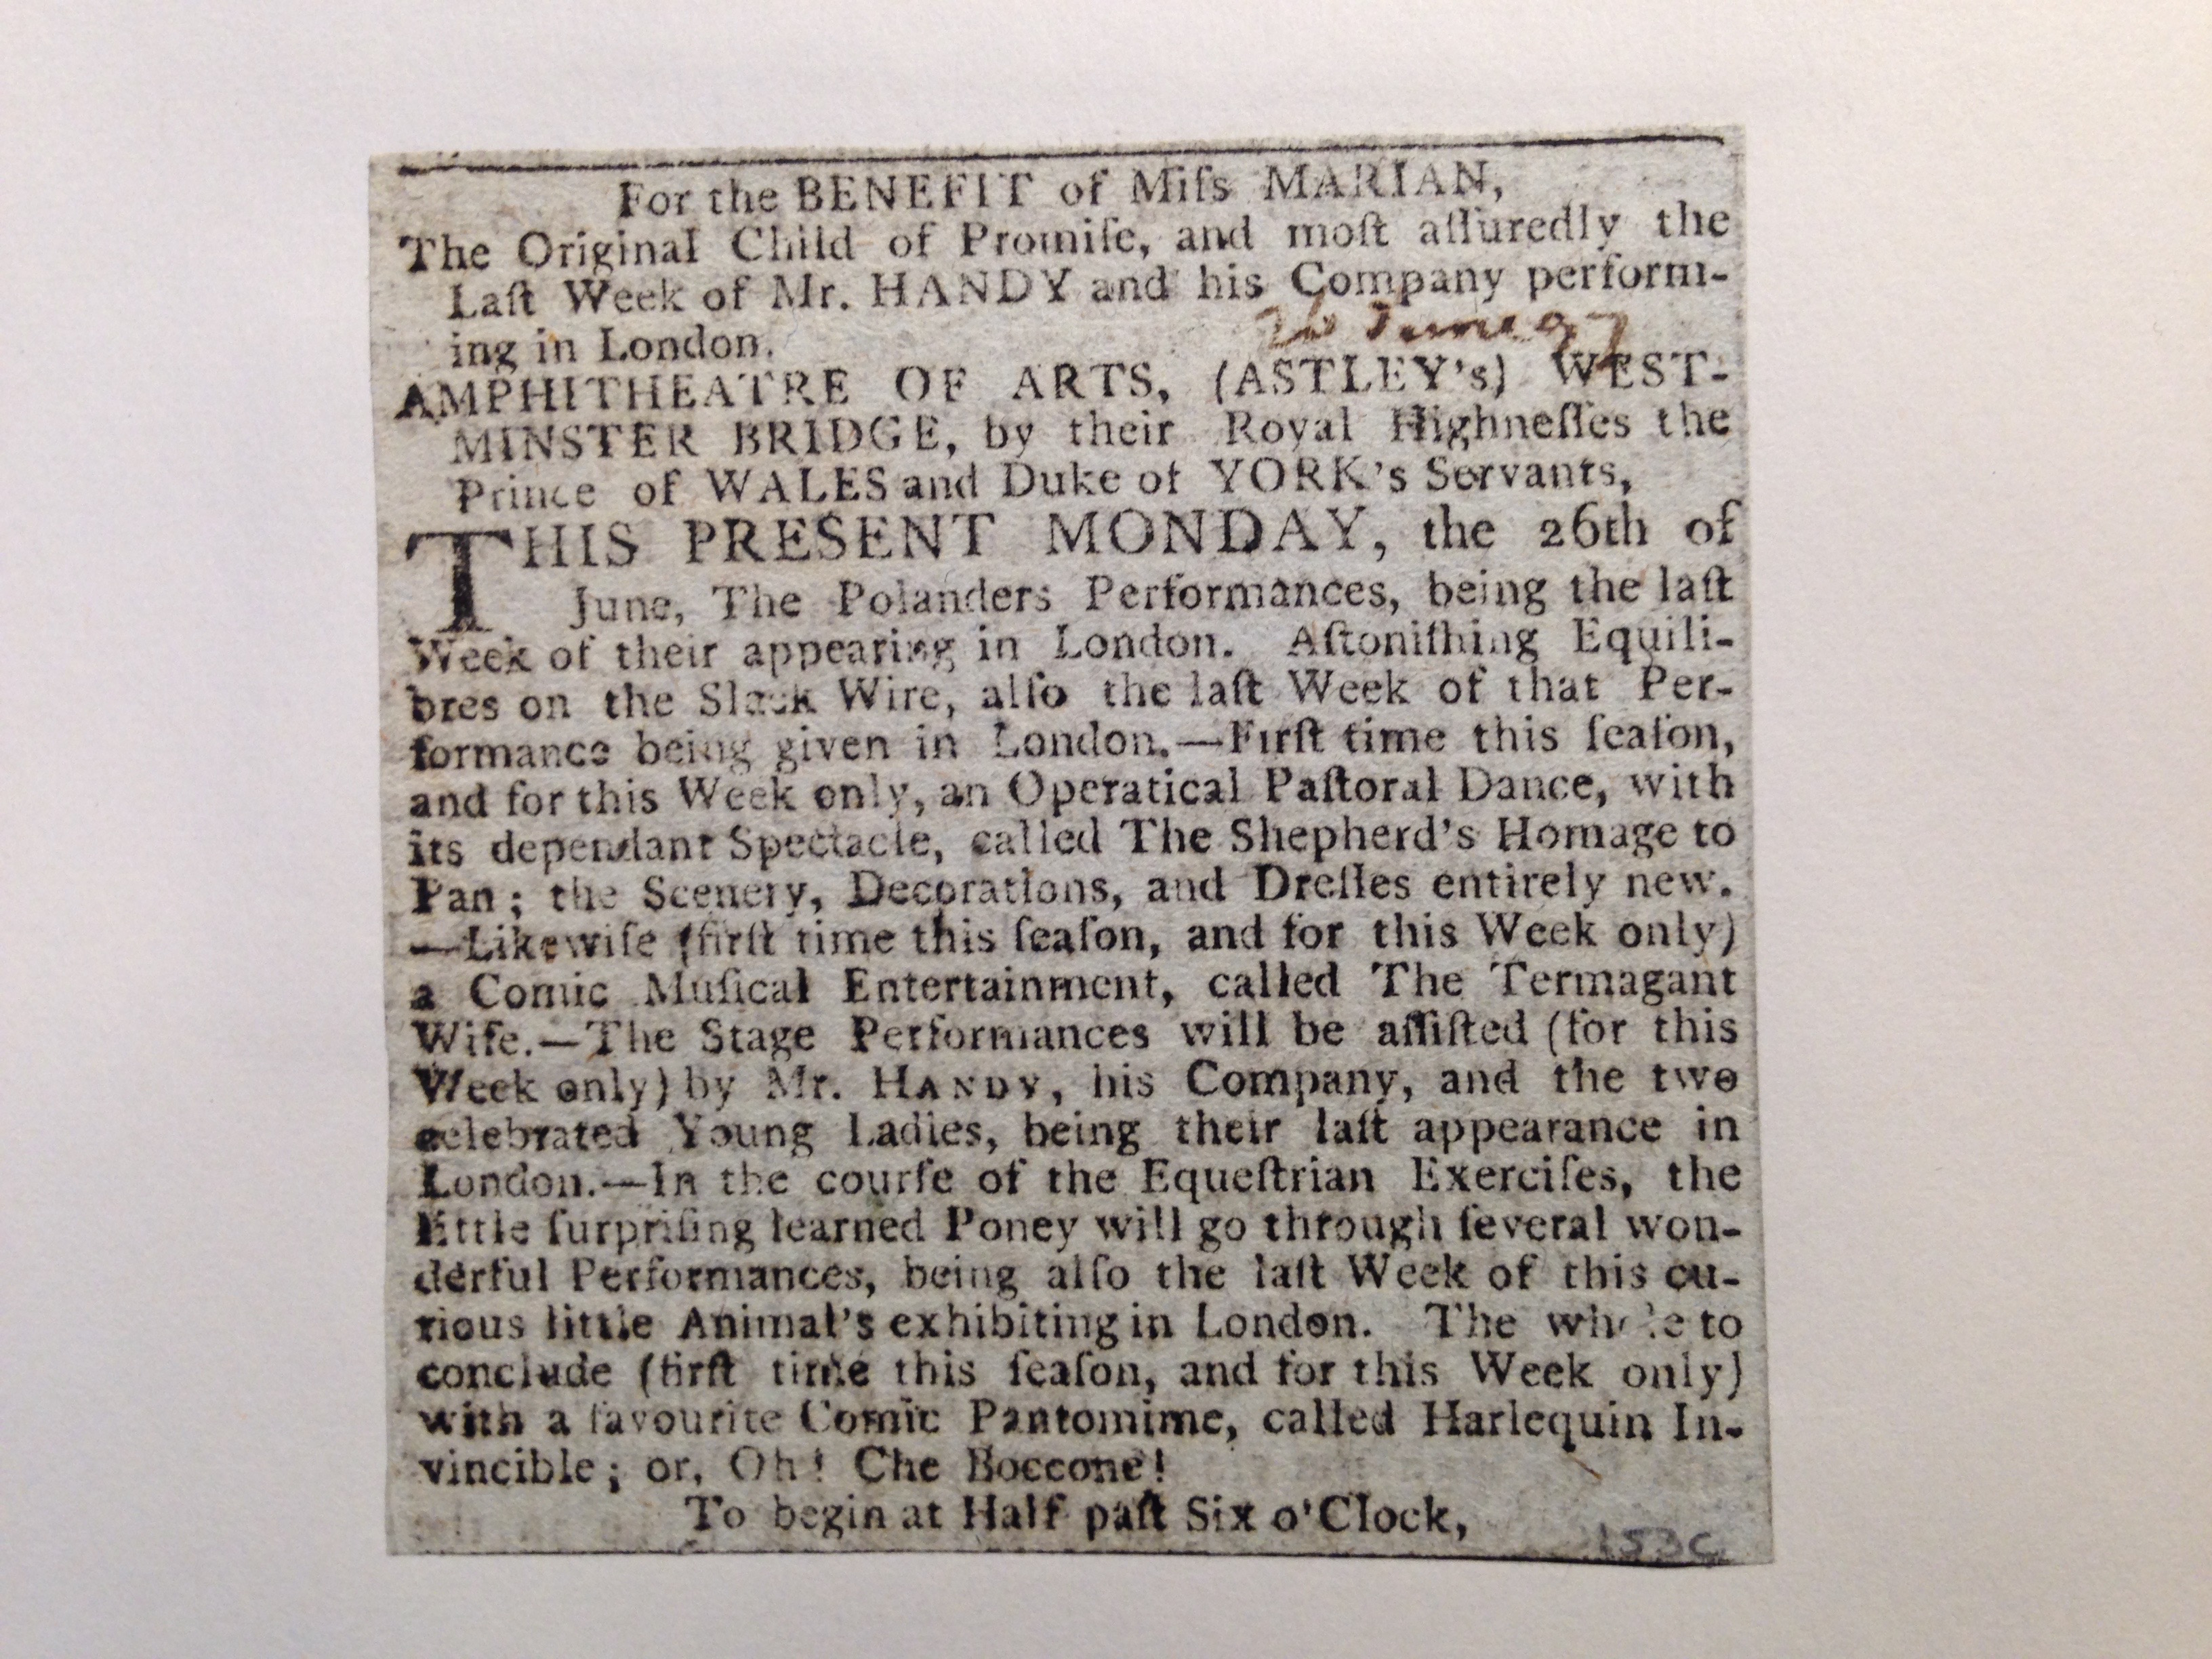 For the BENEFIT of Miſs MARIAN,
The Original Child of Promiſe, and moſt aſſuredly the
Laſt Week of Mr. HANDY and his Company perform-
ing in London.
26 June 97
AMPHITHEATRE OF ARTS, (ASTLEY's) WEST-
MINSTER BRIDGE, by their Royal Highneſſes the
Prince of WALES and Duke of YORK's Servants,
THIS PRESENT MONDAY, the 26th of
June, The Polanders Performances, being the laſt
Week of their appearing in London. Aſtoniſhing Equili-
bres on the Slack Wire, alſo the laſt Week of that Per-
formance being given in London.—Firſt time this ſeaſon,
and for this Week only, an Operatical Paſtoral Dance, with
its dependant Spectacle, called The Shepherd's Homage to
Pan; the Scenery, Decorations, and Dreſſes entirely new.
—Likewiſe (firſt time this ſeaſon, and for this Week only)
a Comic Muſical Entertainment, called The Termagant
Wife.—The Stage Performances will be aſſiſted (for this
Week only) by Mr. HANDY, his Company, and the two
celebrated Young Ladies, being their laſt appearance in
London.—In the courſe of the Equeſtrian Exerciſes, the
little ſurpriſing learned Poney will go through ſeveral won-
derful Performances, being alſo the laſt Week of this cu-
rious little Animal's exhibiting in London. The whole to
conclude (firſt time this ſeaſon, and for this Week only)
with a favourite Comic Pantomime, called Harlequin In-
vincible; or, Oh! Che Boccone!
To begin at Half paſt Six o'Clock,
153C